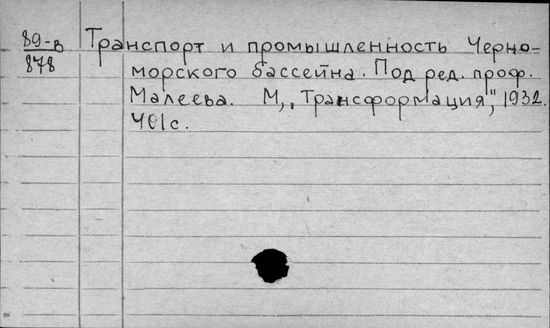 89-в Транспорт и промышленность Черно-
878 морского бассейна. Под ред. проф.
Малеева. М, „Трансформация", 1932.
401с.